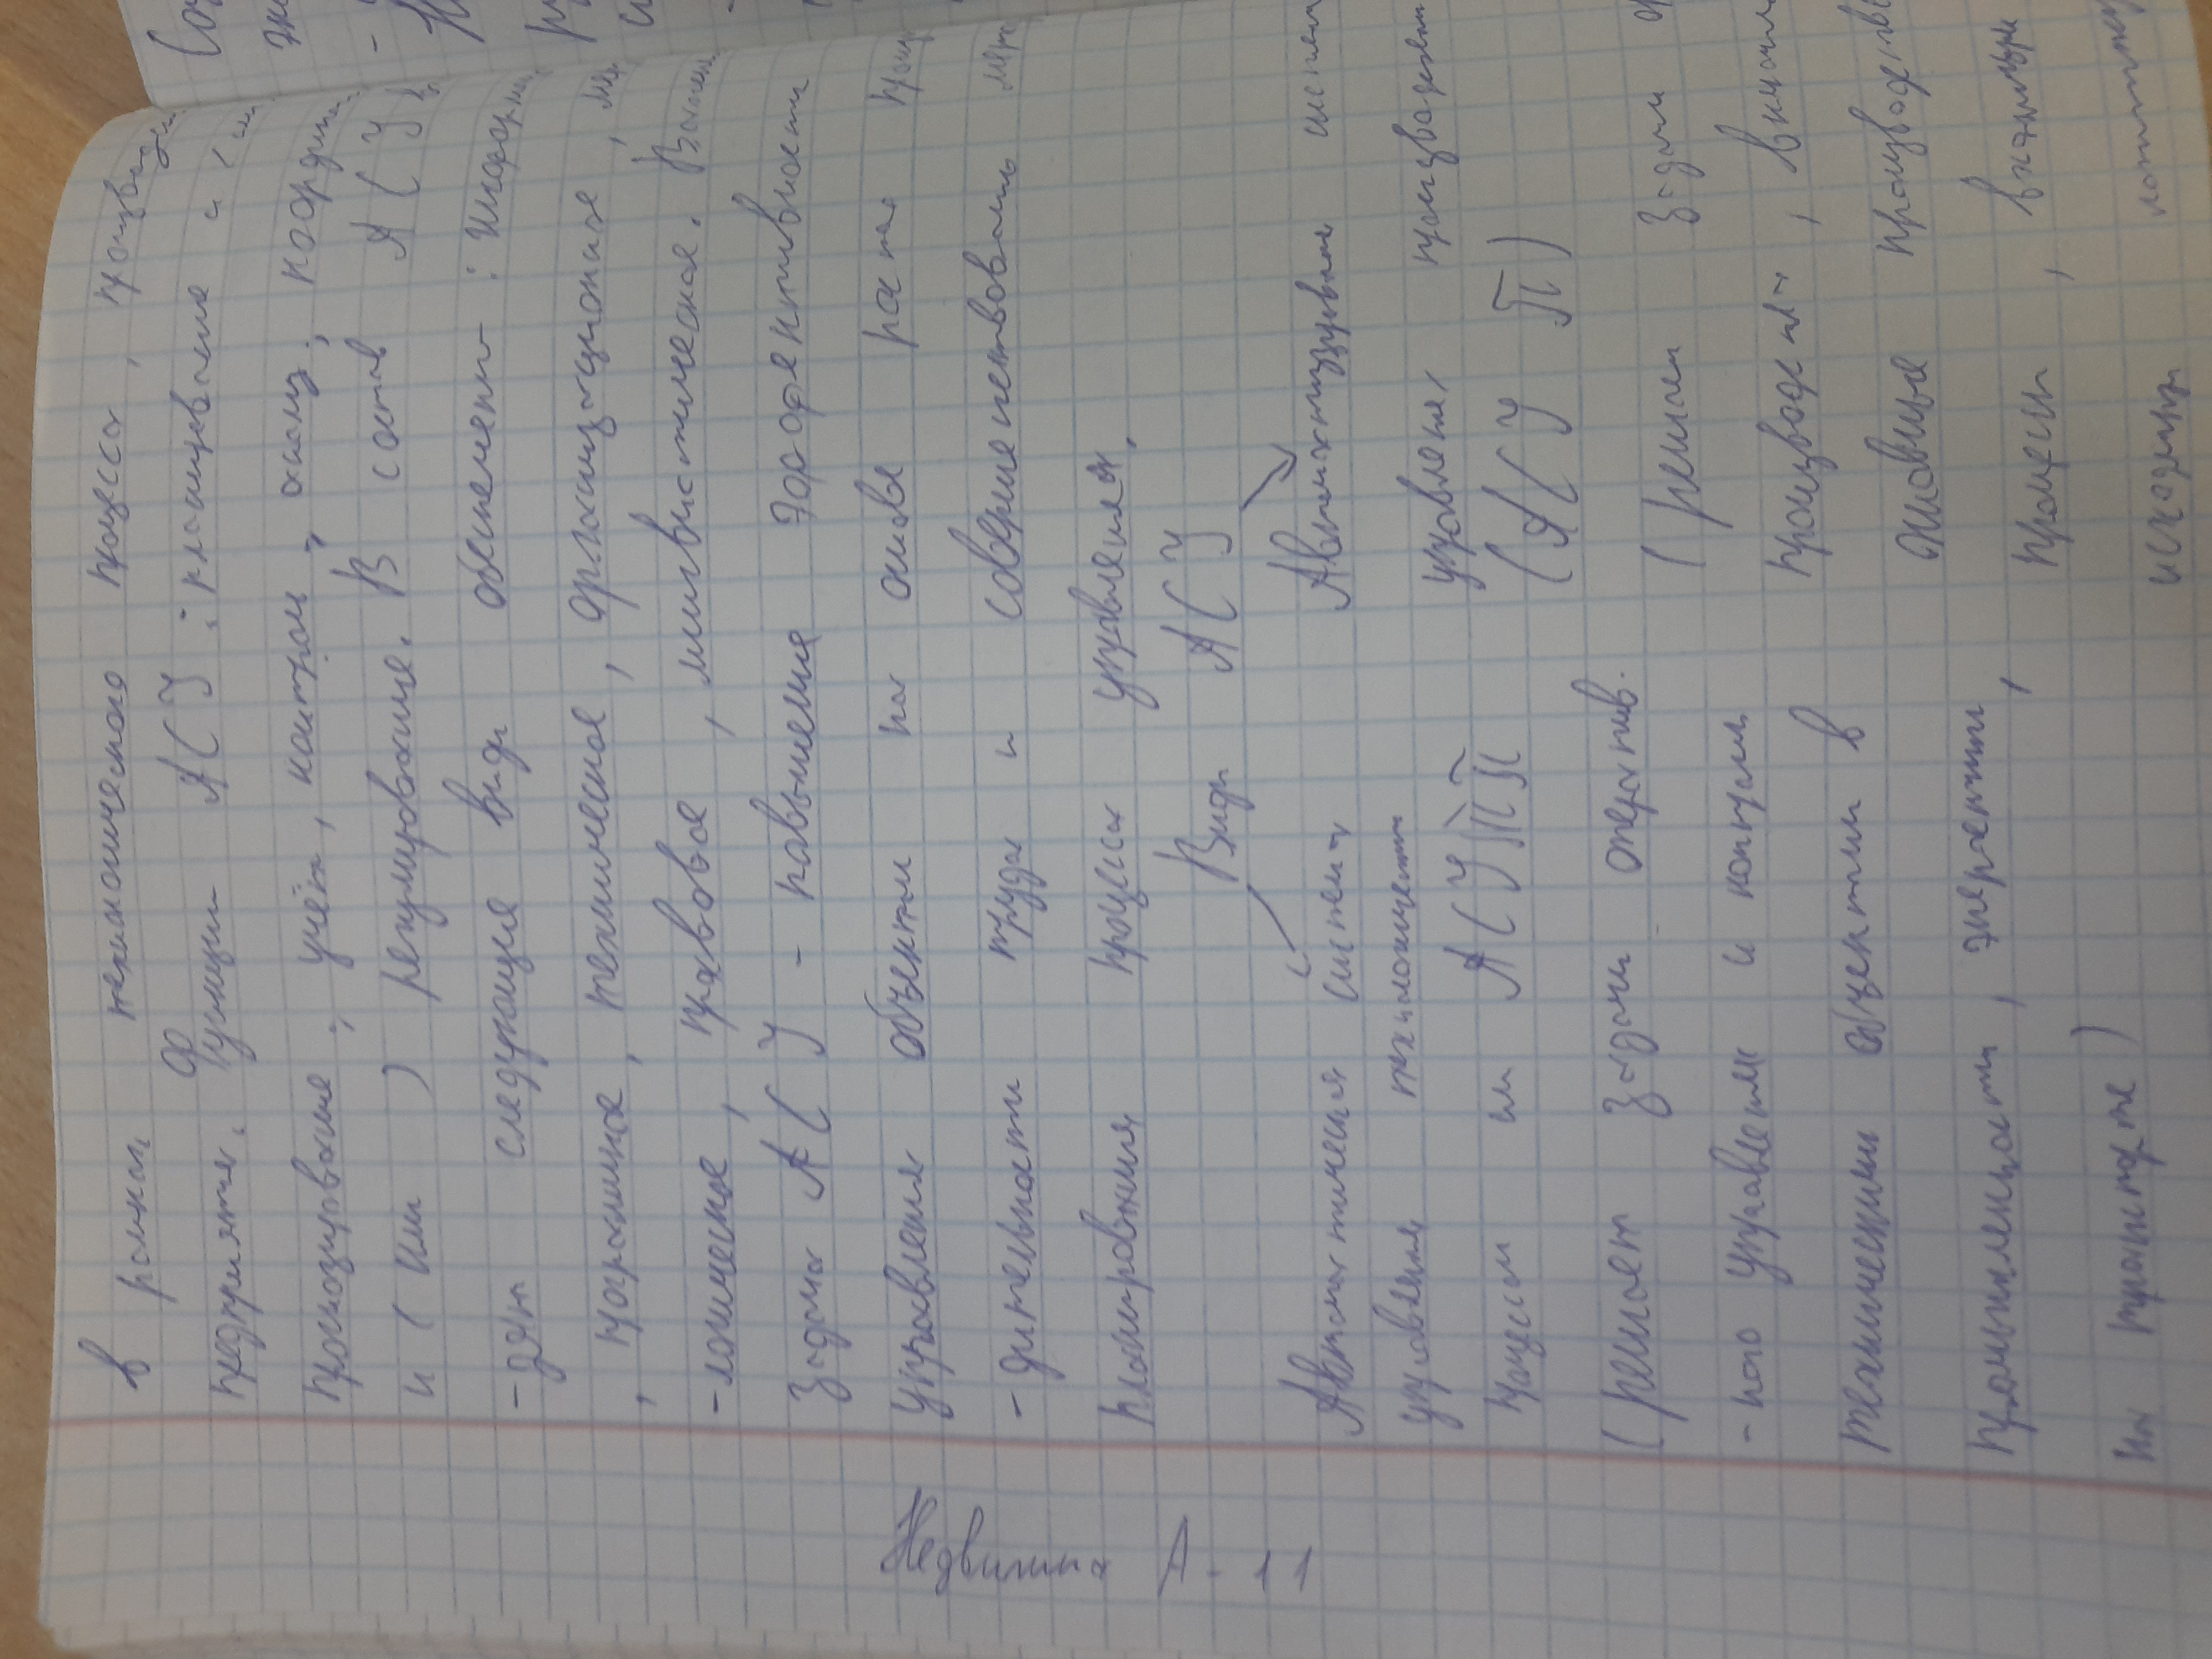 в рамках технологического процесса, производ
предприятия. Функции АСУ: планирование и (и
прогнозирование; учёт, контроль, анализ; координ
и (или) регулирование. В состав АСУ в
-дят следующие виды обеспечения: информа
, программное, техническое, организационное, ме
-логическое, правовое, лингвистическое.
Задачи АСУ - повышение эффективности
управления объектом на основе роста прои
-дительности труда и совершенствования
планирования процесса управления.
Виды АСУ
Автоматическая система Автоматизированная систем
управления технологическим управления производством
процессом или АСУТП (АСУ П)
(решает задачи оператив. (решает задачи ор
-ного управления и контроля производства, включая
техническими объектами в основные производств
промышленности, энергетики, процессы, входящую
на транспорте) исходящую логистику
Недвигина А-11